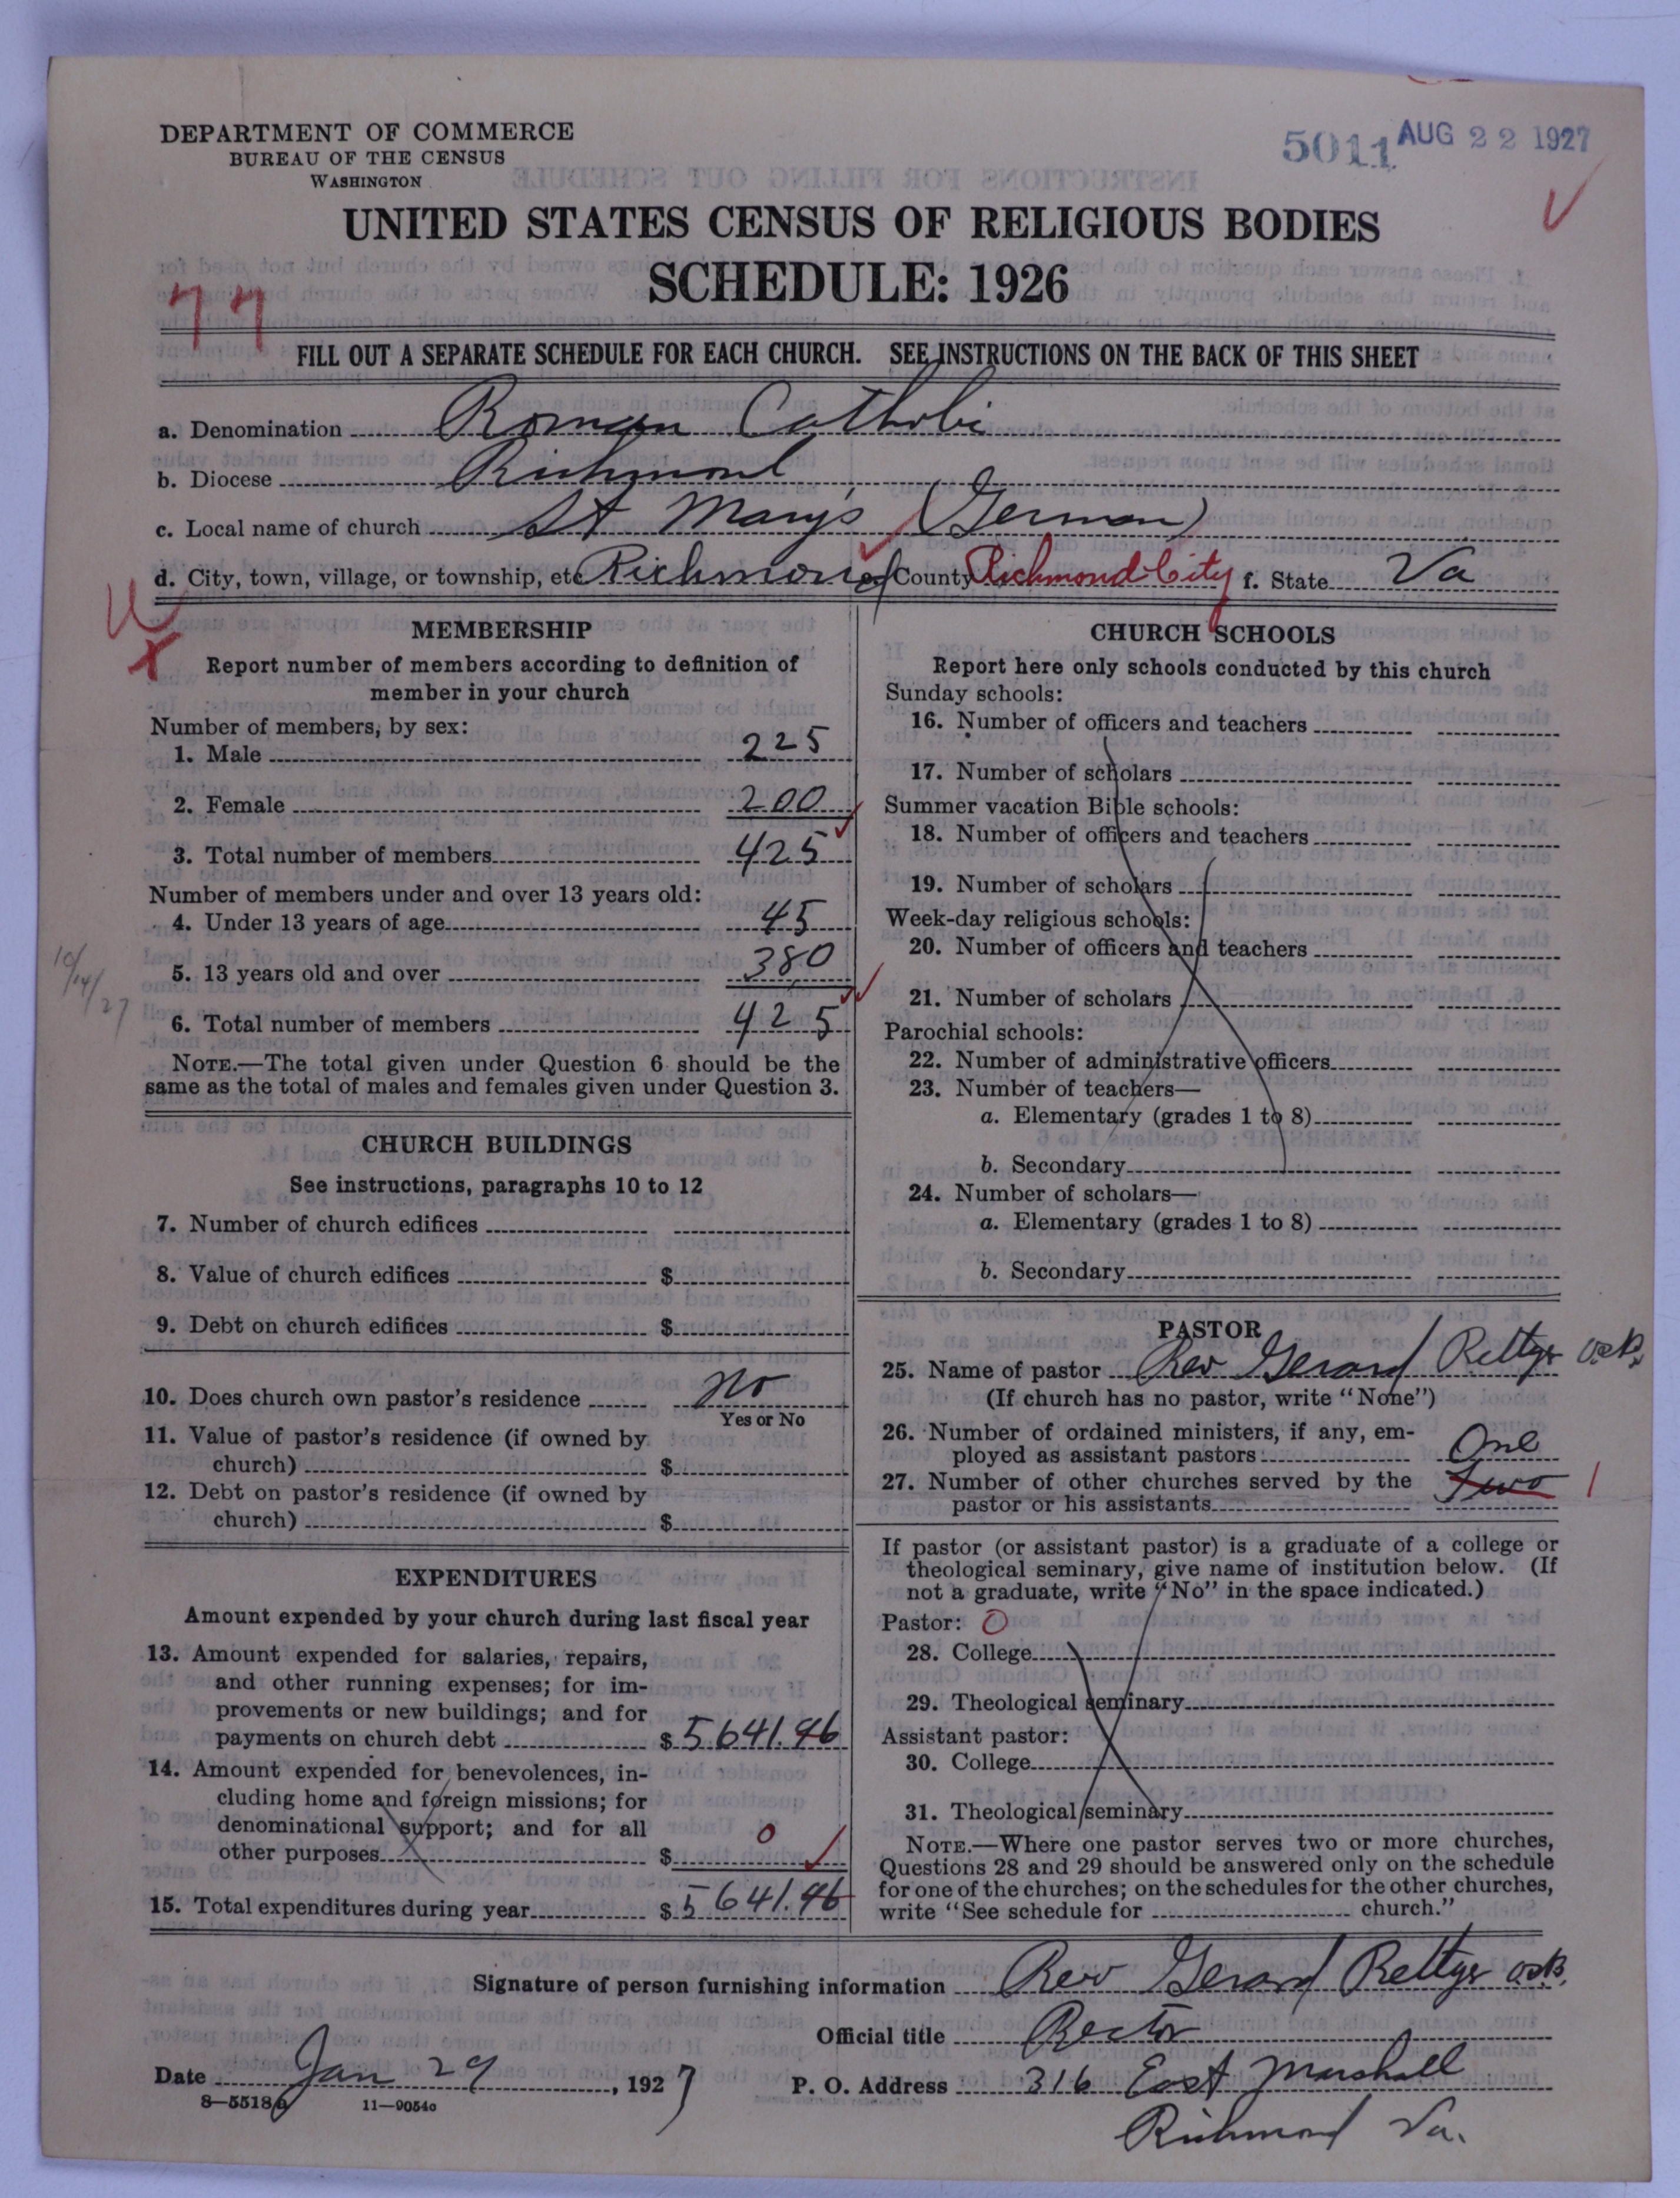 DEPARTMENT OF COMMERCE
BUREAU OF THE CENSUS
WASHINGTON
5011 AUG 22 1927
UNITED STATES CENSUS OF RELIGIOUS BODIES
SCHEDULE: 1926
77
FILL OUT A SEPARATE SCHEDULE FOR EACH CHURCH. SEE INSTRUCTIONS ON THE BACK OF THIS SHEET
a. Denomination Roman Catholic
b. Diocese Richmond
c. Local name of church St Mary's (German)
d. City, town, village, or township, etc Richmond e. County Richmond City f. State Va
MEMBERSHIP
Report number of members according to definition of
member in your church
Number of members, by sex:
1. Male 225
2. Female 200
3. Total number of members 425
Number of members under and over 13 years old:
4. Under 13 years of age 45
5. 13 years old and over 380
10/14/27
6. Total number of members 425
NOTE.—The total given under Question 6 should be the
same as the total of males and females given under Question 3.
CHURCH BUILDINGS
See instructions, paragraphs 10 to 12
7. Number of church edifices
8. Value of church edifices $
9. Debt on church edifices $
10. Does church own pastor's residence No
Yes or No
11. Value of pastor's residence (if owned by
church) $
12. Debt on pastor's residence (if owned by
church) $
EXPENDITURES
Amount expended by your church during last fiscal year
13. Amount expended for salaries, repairs,
and other running expenses; for im-
provements or new buildings; and for
payments on church debt $ 5641.96
14. Amount expended for benevolences, in-
cluding home and foreign missions; for
denominational support; and for all
other purposes $ 0
15. Total expenditures during year $ 5641.96
CHURCH SCHOOLS
Report here only schools conducted by this church
Sunday schools:
16. Number of officers and teachers
17. Number of scholars
Summer vacation Bible schools:
18. Number of officers and teachers
19. Number of scholars
Week-day religious schools:
20. Number of officers and teachers
21. Number of scholars
Parochial schools:
22. Number of administrative officers
23. Number of teachers—
a. Elementary (grades 1 to 8)
b. Secondary
24. Number of scholars—
a. Elementary (grades 1 to 8)
b. Secondary
PASTOR
25. Name of pastor Rev Gerard Rettger O.S.B.
(If church has no pastor, write "None")
26. Number of ordained ministers, if any, em-
ployed as assistant pastors One
27. Number of other churches served by the Two 1
pastor or his assistants
If pastor (or assistant pastor) is a graduate of a college or
theological seminary, give name of institution below. (If
not a graduate, write "No" in the space indicated.)
Pastor: 0
28. College
29. Theological seminary
Assistant pastor:
30. College
31. Theological seminary
NOTE.—Where one pastor serves two or more churches,
Questions 28 and 29 should be answered only on the schedule
for one of the churches; on the schedules for the other churches,
write "See schedule for church."
Signature of person furnishing information Rev Gerard Rettger O.S.B.
Official title Rector
Date Jan 29, 1927 P. O. Address 316 East Marshall
Richmond Va.
8—5518a 11—9054c